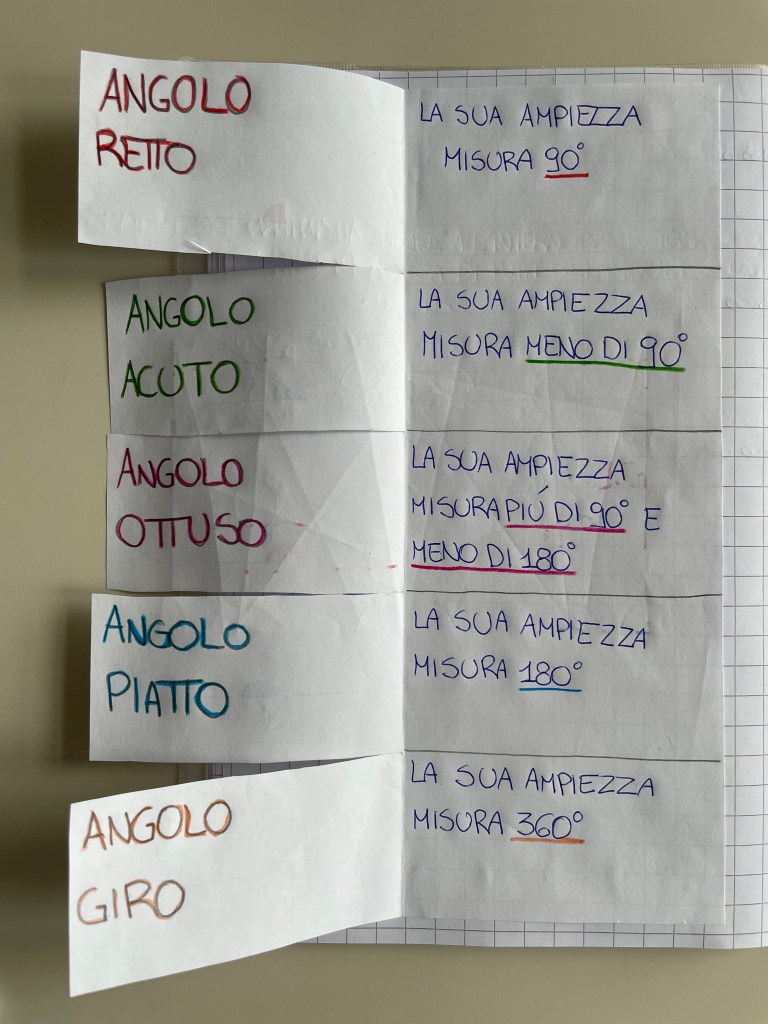 ANGOLO
RETTO
LA SUA AMPIEZZA
MISURA 90°
ANGOLO
ACUTO
LA SUA AMPIEZZA
MISURA MENO DI 90°
ANGOLO
OTTUSO
LA SUA AMPIEZZA
MISURA PIÚ DI 90° E
MENO DI 180°
ANGOLO
PIATTO
LA SUA AMPIEZZA
MISURA 180°
ANGOLO
GIRO
LA SUA AMPIEZZA
MISURA 360°